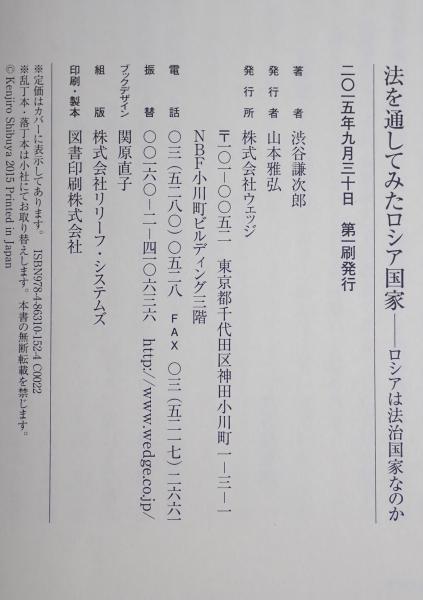 法を通してみたロシア国家――ロシアは法治国家なのか
二〇一五年九月三十日　第一刷発行
著　者　渋谷謙次郎
発行者　山本雅弘
発行所　株式会社ウェッジ
〒一〇一－〇〇五二　東京都千代田区神田小川町一－三－一
NBF小川町ビルディング三階
電　話　〇三（五二八〇）〇五二八　FAX　〇三（五二一七）二六六一
振　替　〇〇一六〇－二－四一〇六三六　http://www.wedge.co.jp/
ブックデザイン　関原直子
組　版　株式会社リリーフ・システムズ
印刷・製本　図書印刷株式会社
※定価はカバーに表示してあります。　ISBN978-4-86310-152-4 C0022
※乱丁本・落丁本は小社にてお取り替えします。　本書の無断転載を禁じます。
© Kenjiro Shibuya 2015 Printed in Japan